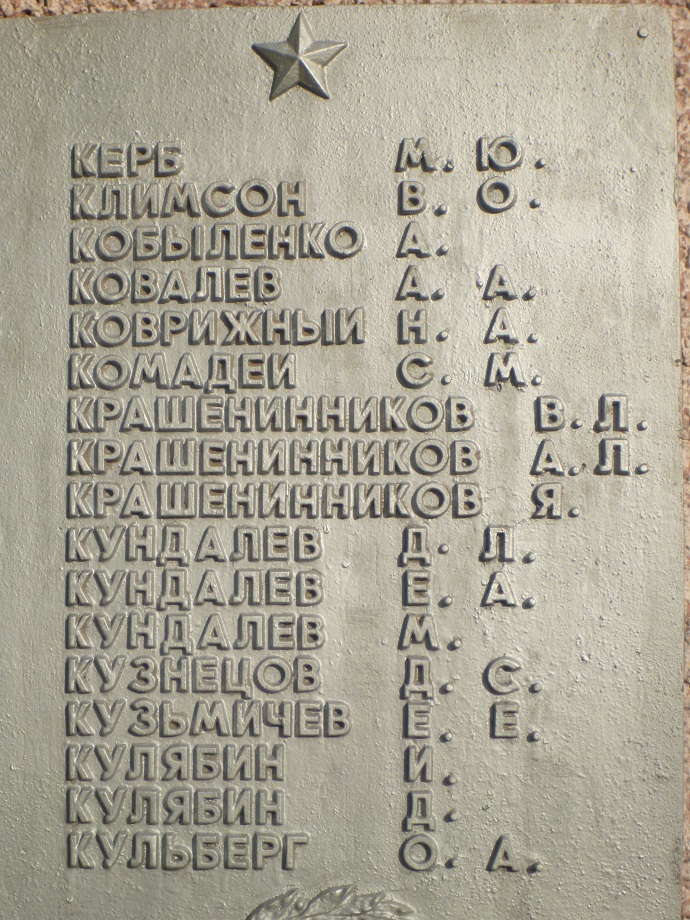 КЕРБ М. Ю.
КЛИМСОН В. О.
КОБЫЛЕНКО А.
КОВАЛЕВ А. А.
КОВРИЖНЫЙ Н. А.
КОМАДЕЙ С. М.
КРАШЕНИННИКОВ В. Л.
КРАШЕНИННИКОВ А. Л.
КРАШЕНИННИКОВ Я.
КУНДАЛЕВ Д. Л.
КУНДАЛЕВ Е. А.
КУНДАЛЕВ М.
КУЗНЕЦОВ Д. С.
КУЗЬМИЧЕВ Е. Е.
КУЛЯБИН И.
КУЛЯБИН Д.
КУЛЬБЕРГ О. А.